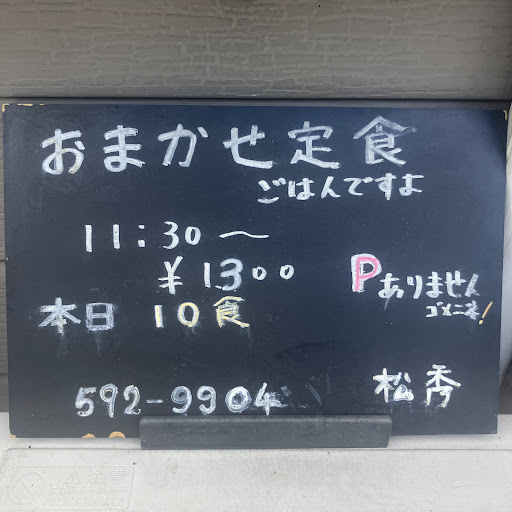 おまかせ定食
ごはんですよ
11:30〜
¥1300
Pありません
ゴメンネ!
本日 10食
592-9904
松秀